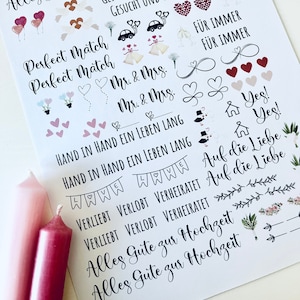 Alles
Gesucht und
Für immer
Für immer
Perfect Match
Perfect Match
Mr. & Mrs.
Mr. & Mrs.
Yes!
Yes!
Hand in Hand ein Leben lang
Hand in Hand ein Leben lang
Auf die Liebe
Auf die Liebe
Verliebt Verlobt Verheiratet
Verliebt Verlobt Verheiratet
Alles Gute zur Hochzeit
Alles Gute zur Hochzeit